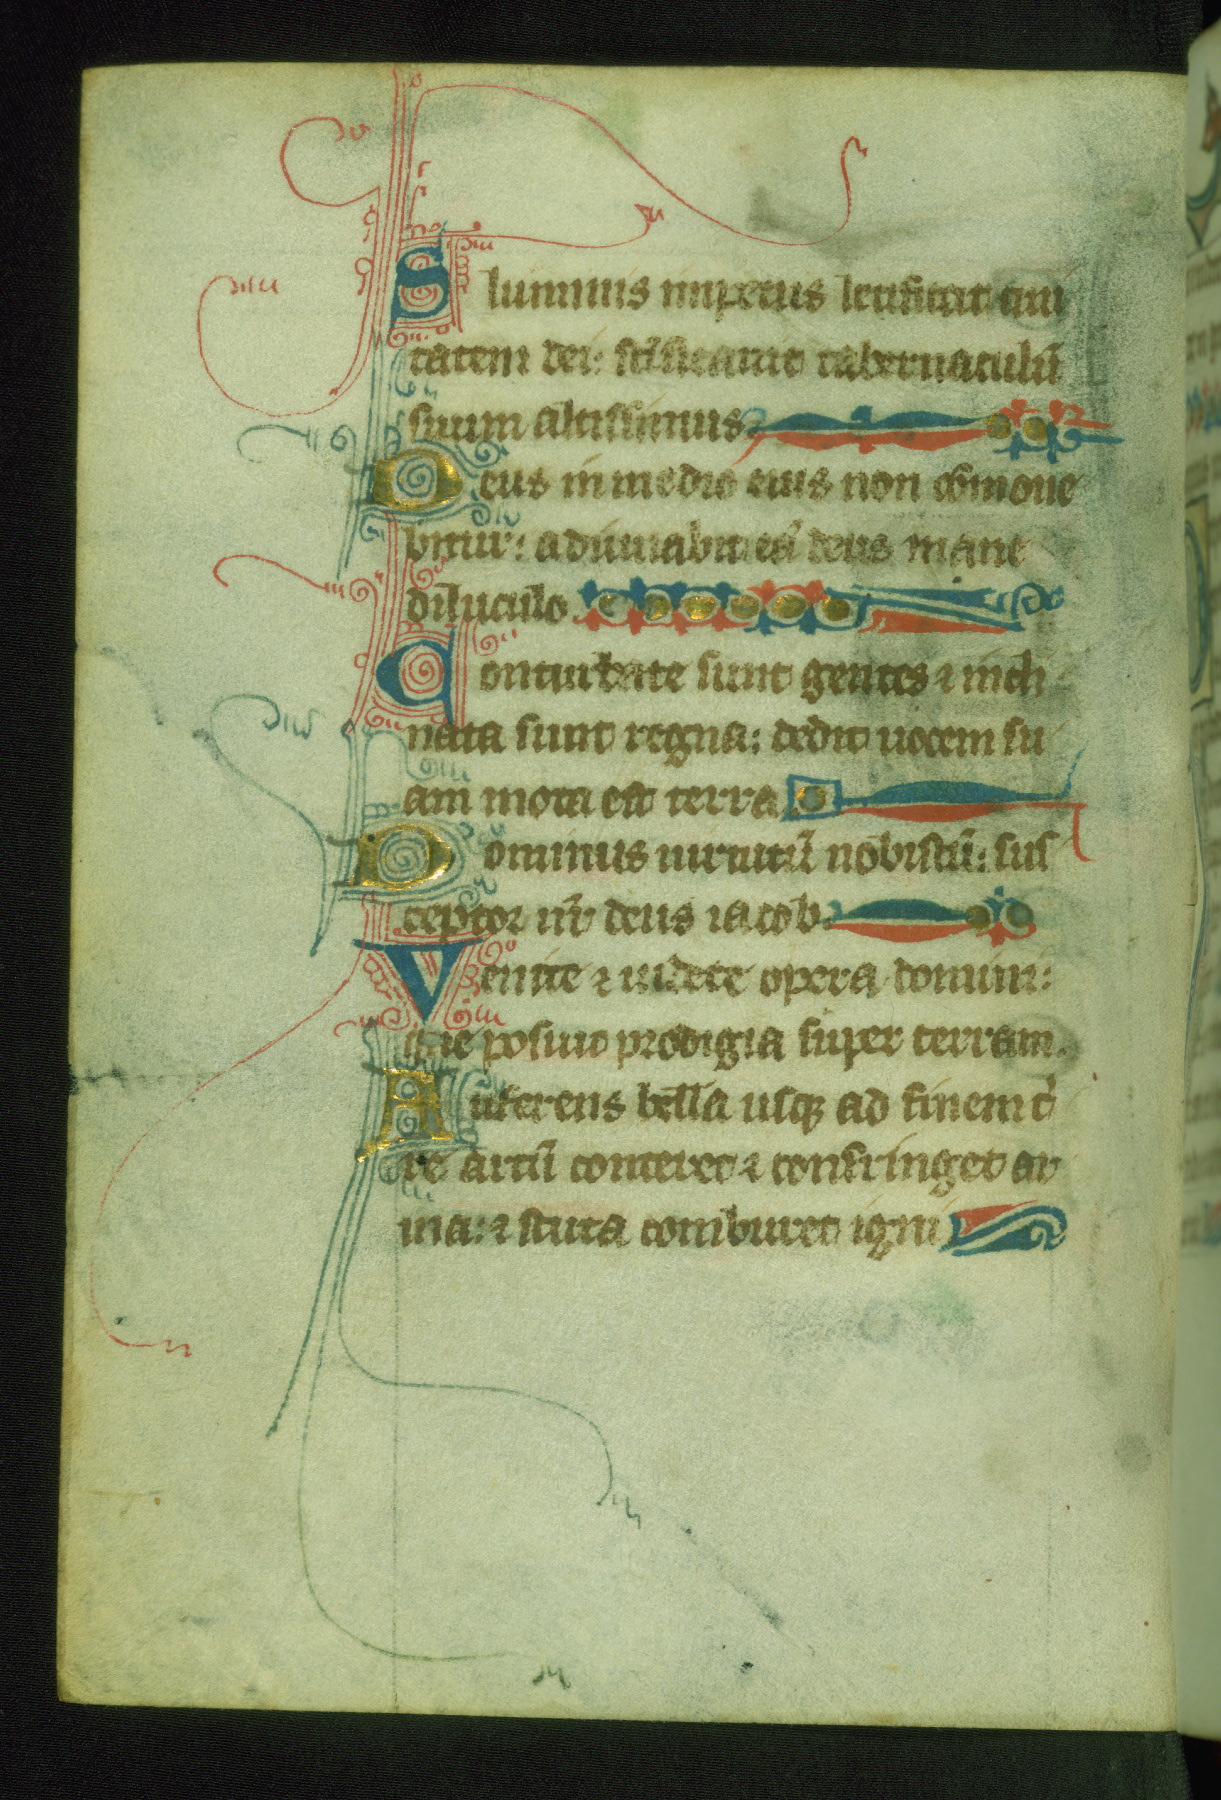 Sluminis impetus letificat ciui
tatem dei: scīficauit tabernaculū
suum altissimus
Deus in medio eius non cōmoue
bitur: adiuuabit eā deus mane
diluculo
Conturbate sunt gentes ⁊ incli
nata sunt regna: dedit uocem su
am mota est terra
Dominus uirtutū nobiscū: sus
ceptor nr̄ deus iacob
Venite ⁊ uidete opera domini:
que posuit prodigia super terram
Auferens bella usqꝫ ad finem t̓
re arcū conteret ⁊ confringet ar
ma: ⁊ scuta comburet igni